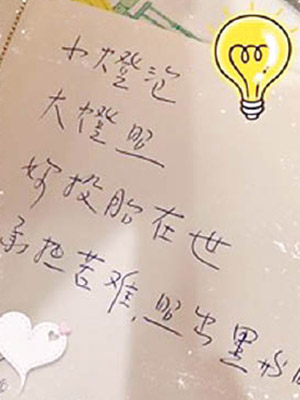 小燈泡
大燈照
好投胎在世
苦难,照出黑